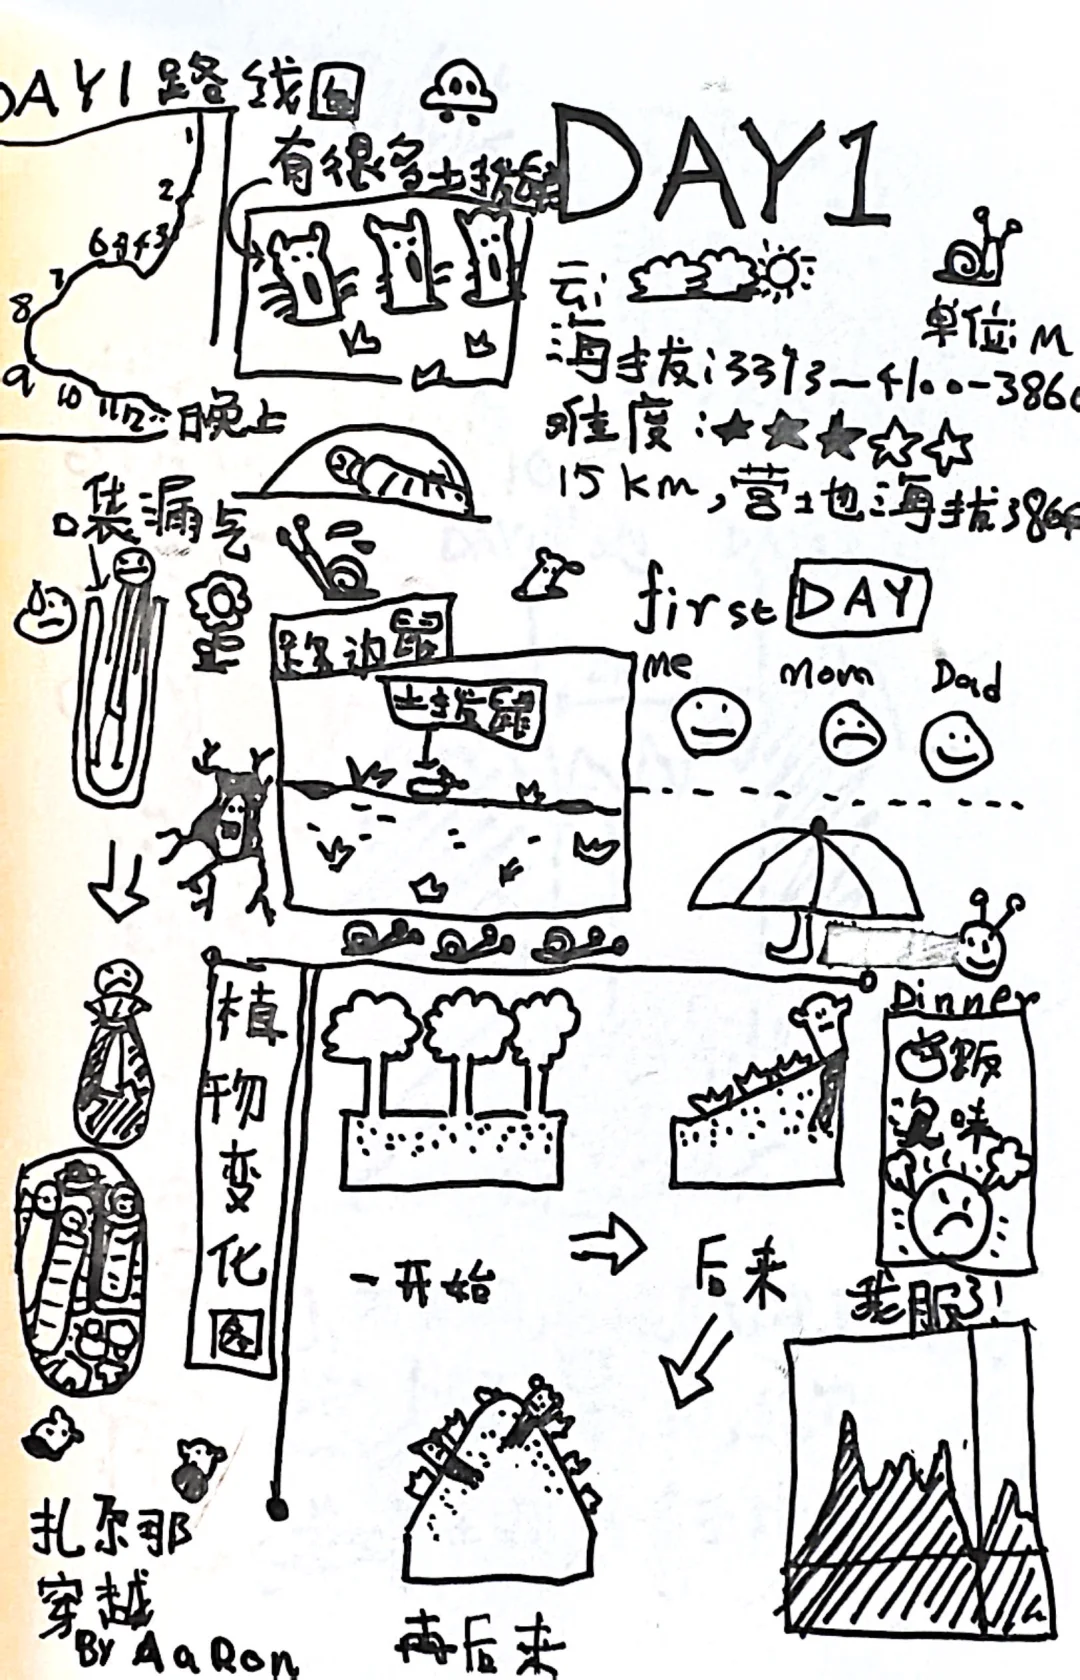 DAY1路线图
1
2
3
4
5
6
7
8
9
10
11
12
晚上
有很多土拨鼠
DAY1
云:
单位:M
海拔:3393—4100-3860
难度:★★★☆☆
15km,营地海拔3860
口袋漏气
first DAY
Me Mom Dad
路边
土拨鼠
植物变化图
一开始
后来
再后来
Dinner
没味
我服了!
扎尕那
穿越
By AaRon